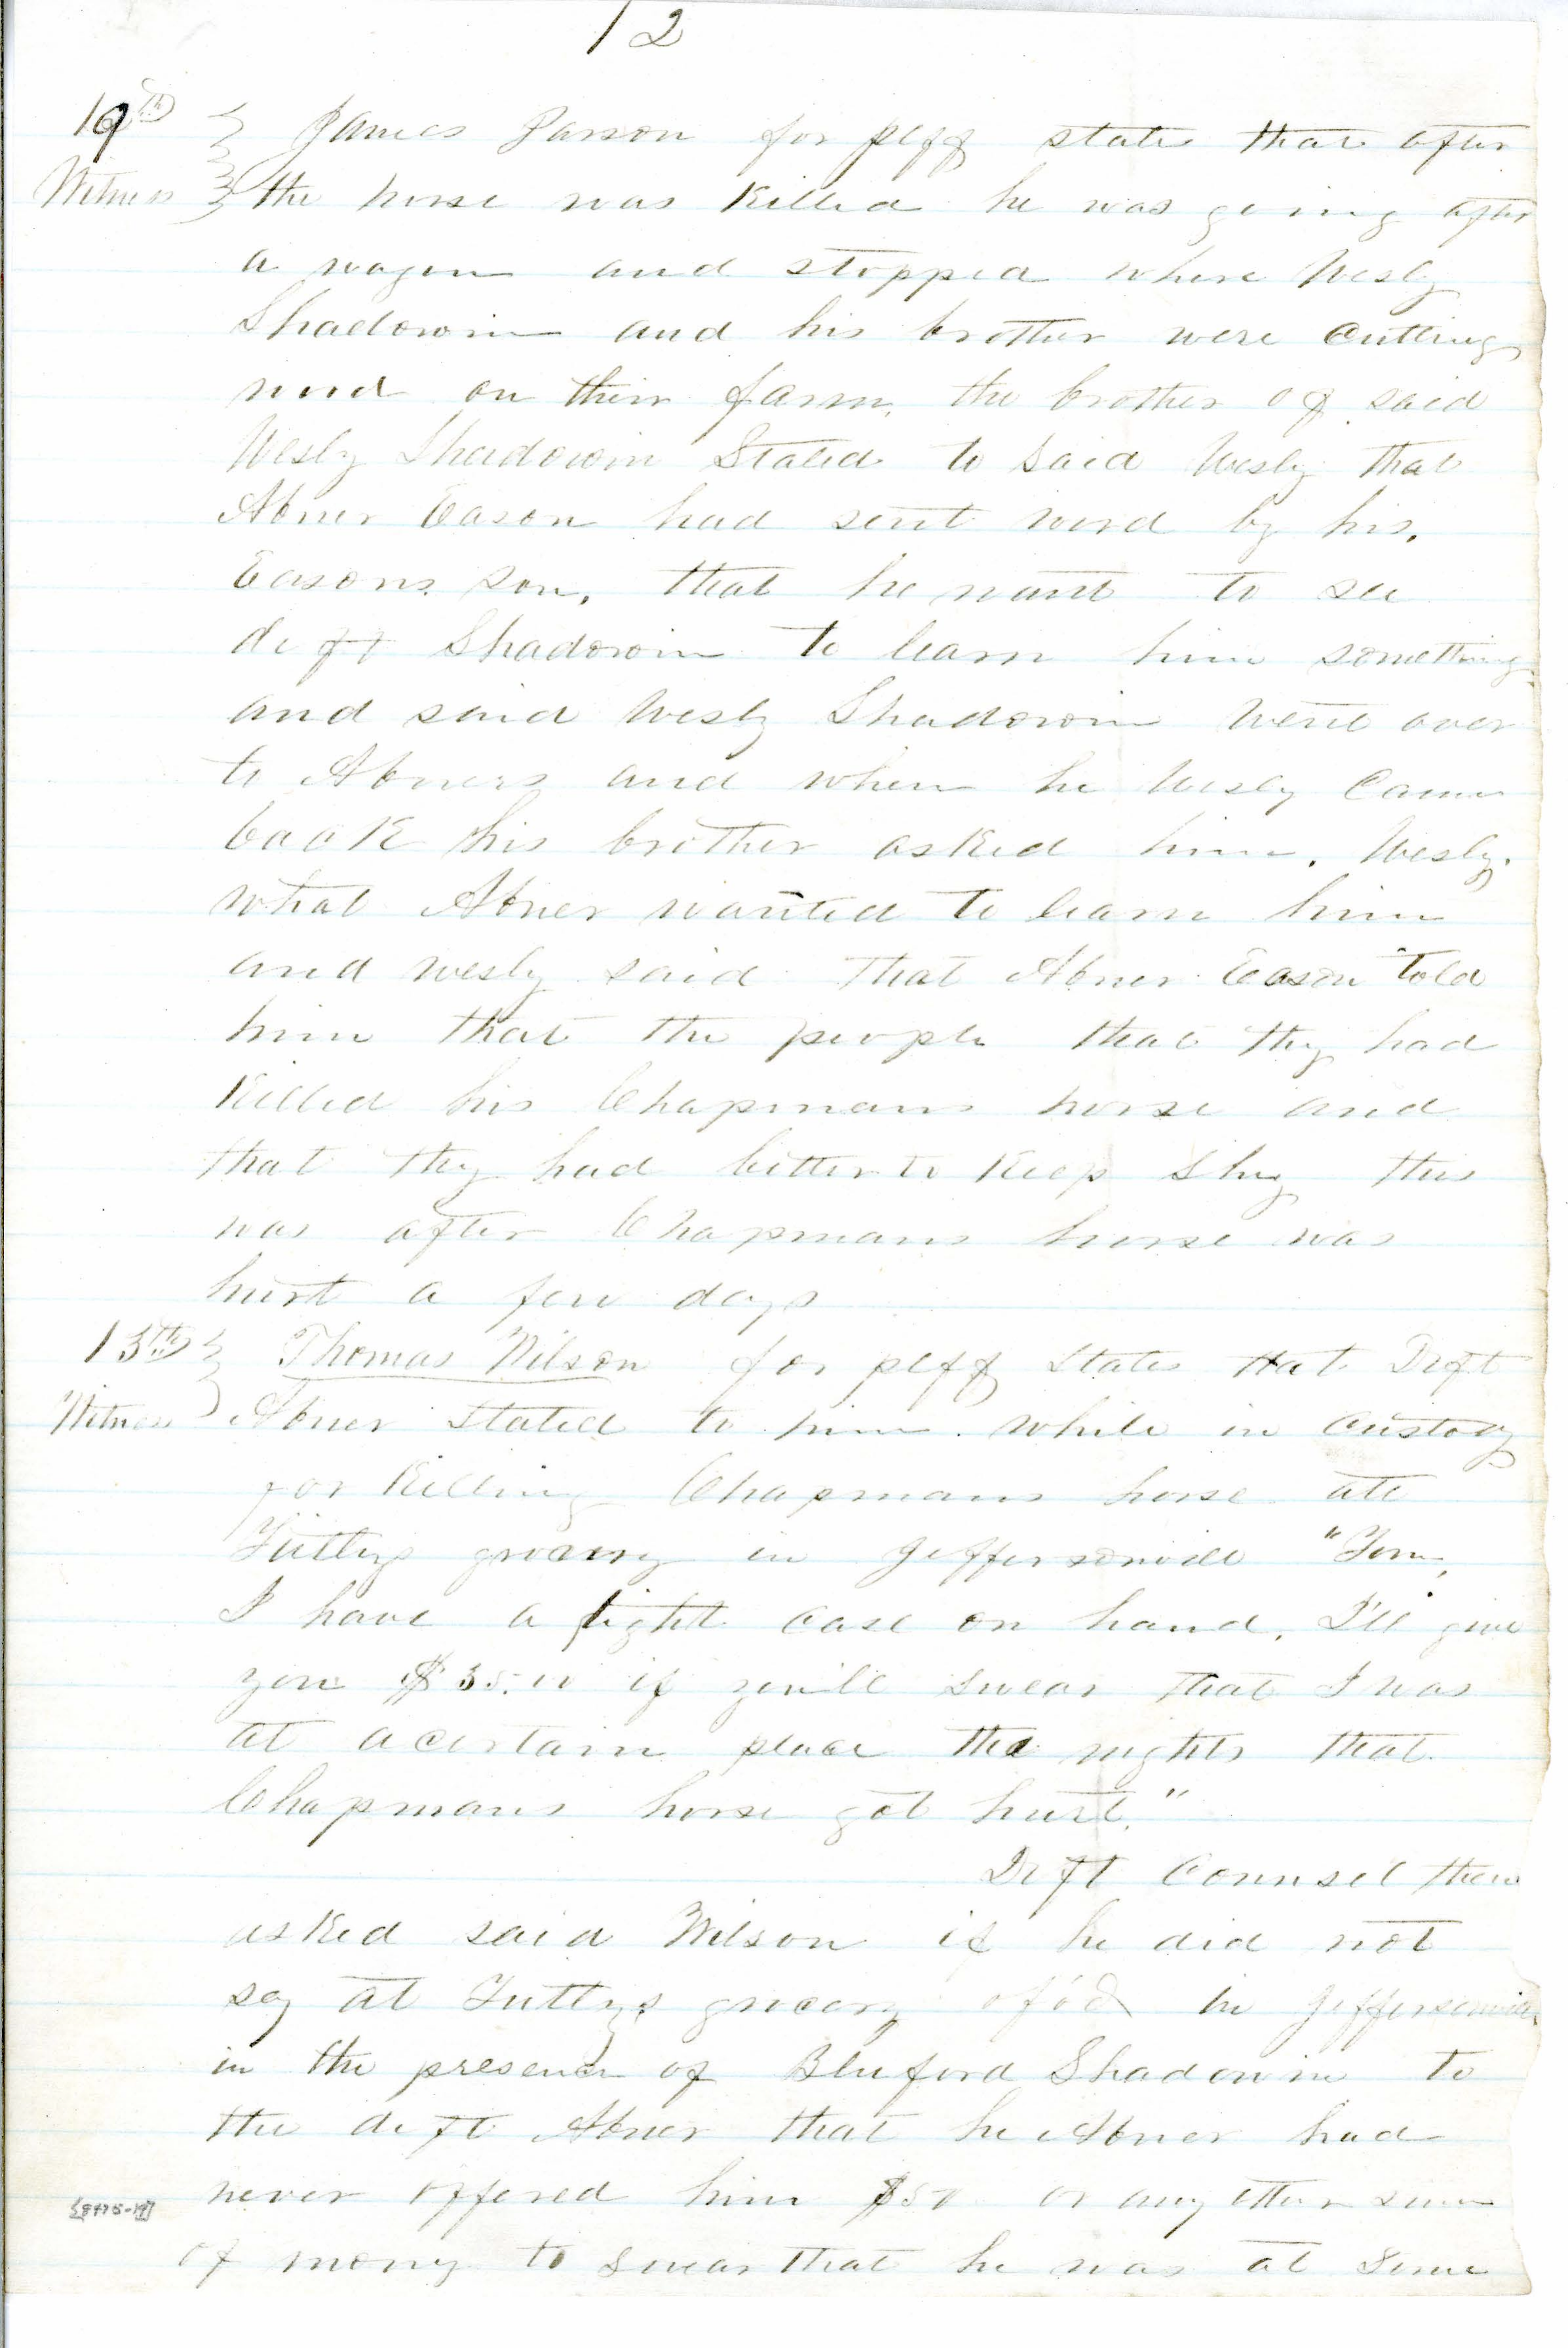 12
James Parson for plff states that after
Witness the horse was Killed he was going after
a wagon and stopped where Wesly
Shadowin and his brother were Cutting
wood on their farm. the brother of said
Wesly Shadowin Stated to Said Wesly that
Abner Eason had sent word by his,
Easons son, that he want to see
deft Shadowin to learn him something
and said Wesly Shadowin went over
to Abners and when he Wesly Came
back his brother asked him, Wesly.
what Abner wanted to learn him
and wesly said that Abner Eason told
him that the people that they had
Killed his Chapmans horse and
that they had better to Keep Shy this
was after Chapmans horse was
hurt a few days
13th Thomas Wilson for plff States that Deft
Witness Abner Stated to him while in Custody
for Killing Chapmans horse at
Tuttys grocery in Jeffersonvill "Tom,
I have a tight case on hand, I'll give
you $35.00 if youll Swear that I was
at a certain place the nights that
Chapmans horse got hurt."
Deft Counsel then
asked said Wilson if he did not
say at Tuttys grocery in Jeffersonville
in the presence of Bluford Shadowin to
the deft Abner that he Abner had
never offered him $50 or any other sum
of mony to Swear that he was at Some